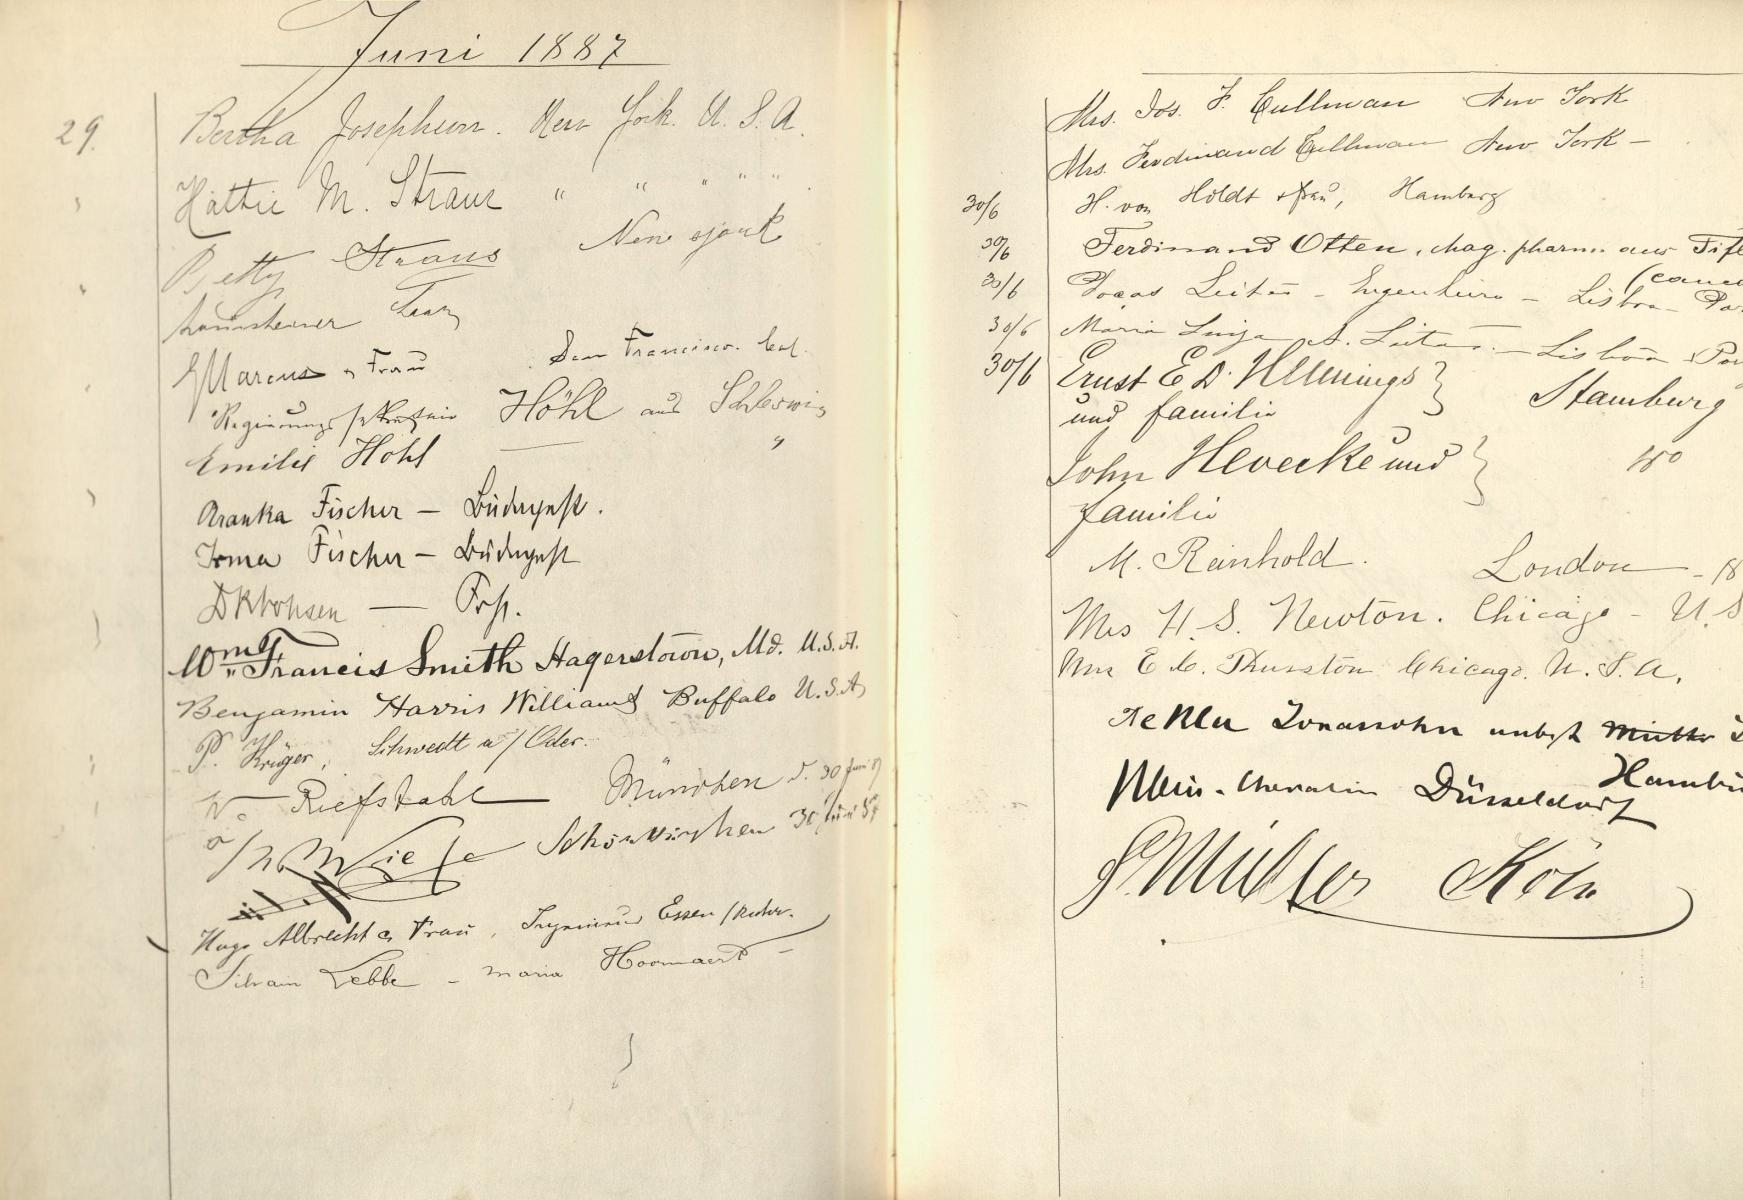 Juni 1887
29.
Bertha Josephson. New York. U. S. A.
Hattie M. Straus " " " " "
Betty Straus New York
Frau
Marcus u Frau San Francisco. Cal.
Regierungssekretair Höhl aus Schleswig
Emilie Höhl — "
Aranka Fischer – Budapest.
Irma Fischer – Budapest
—
Wm. Francis Smith Hagerstown, Md. U.S.A.
Benjamin Harris Williams Buffalo U.S.A
P. Krüger, Schwedt a/Oder.
W. Riefstahl München d. 30 Juni 87
Wiese Schönkirchen 30 Juni 87
Hugo Albrecht & Frau, Ingenieur Essen/Ruhr.
Silvain Lebbe – Maria Hoornaert –
Mrs. Jos. F. Cullman New York
Mrs. Ferdinand Cullman New York –
30/6 H. von Holdt & Frau, Hamburg
30/6 Ferdinand Otten, Mag. pharm. aus
30/6 Leitão – Engenheiro – Lisboa –
30/6 Maria Luiza A. Leitão – Lisboa
30/6 Ernst E. D. Hennings }
und Familie } Hamburg
John Hevecke und }
Familie
M. Reinhold. London –
Mrs H. S. Newton. Chicago – U.S
Mrs E. C. Thurston Chicago. U. S. A.
Tekla Jonassohn nebst Mutter
Düsseldorf
Müller Köln